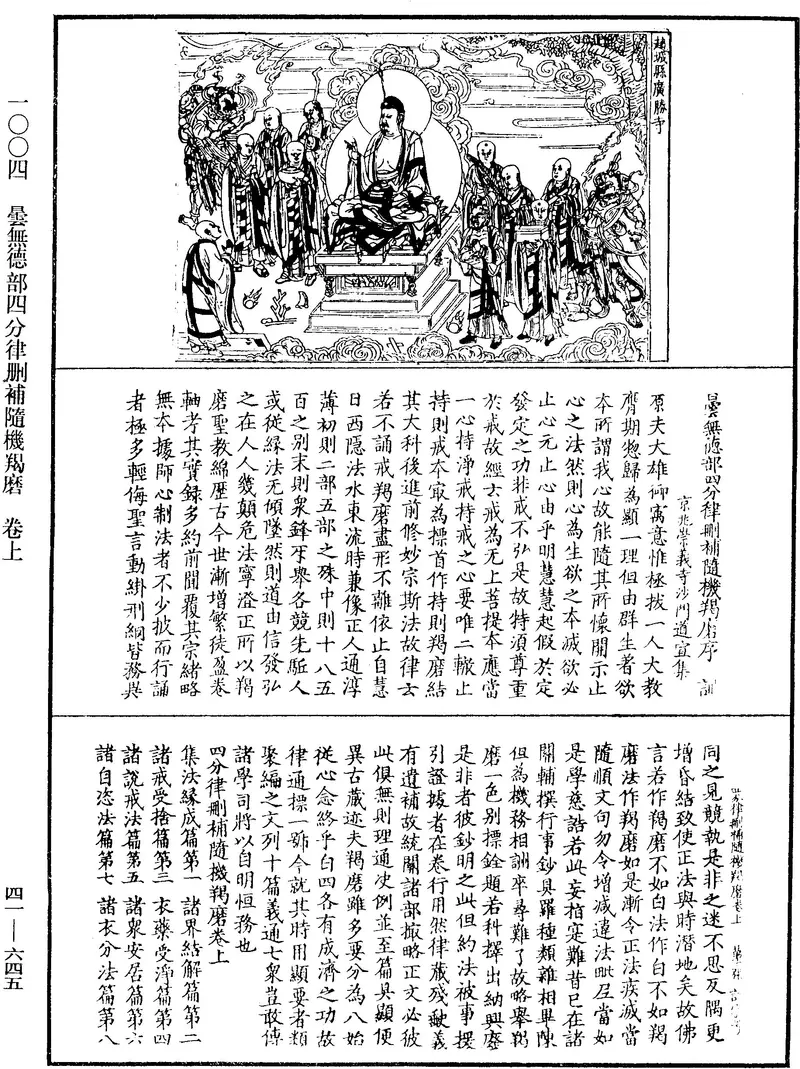 一〇〇四 曇無德部四分律刪補隨機羯磨 卷上
趙城縣廣勝寺
曇無德部四分律刪補隨機羯磨序 訓
京兆崇義寺沙門道宣集
原夫大雄御寓意惟極拔一人大教
膺期惣歸為顯一理但由群生著欲
本所謂我心故能隨其所懷開示止
心之法然則心為生欲之本滅欲必
止心元止心由乎明慧慧起假於定
發定之功非戒不弘是故特須尊重
於戒故經云戒為无上菩提本應當
一心持淨戒持戒之心要唯二轍止
持則戒本㝡為標首作持則羯磨結
其大科後進前修妙宗斯法故律云
若不誦戒羯磨盡形不離依止自慧
日西隱法水東流時兼像正人通淳
薄初則二部五部之殊中則十八五
百之別末則眾鋒互舉各競先駈人
或從緣法无傾墜然則道由信發弘
之在人人幾顛危法寧澄正所以羯
磨聖教綿歷古今世漸增繁徒盈卷
軸考其實錄多約前聞覆其宗緒略
無本據師心制法者不少披而行誦
者極多輕侮聖言動掛刑網皆務異
四分律刪補隨機羯磨卷上
同之見競執是非之迷不思反隅更
增昏結致使正法與時潛地矣故佛
言若作羯磨不如白法作白不如羯
磨法作羯磨如是漸令正法疾滅當
隨順文句勿令增減違法毗尼當如
是學慈誥若此妄指寔難昔已在諸
關輔撰行事鈔具羅種類雜相畢陳
但為機務相詶卒尋難了故略舉羯
磨一色別標銓題若科擇出納興廢
是非者彼鈔明之此但約法被事援
引證據者在卷行用然律藏殘缺義
有遺補故統關諸部撮略正文必彼
此俱無則理通決例並至篇具顯便
異古藏迹夫羯磨雖多要分為八始
從心念終乎白四各有成濟之功故
律通標一號今就其時用顯要者類
聚編之文列十篇義通七眾豈敢傳
諸學司將以自明恒務也
四分律刪補隨機羯磨卷上
集法緣成篇第一 諸界結解篇第二
諸戒受捨篇第三 衣藥受淨篇第四
諸說戒法篇第五 諸眾安居篇第六
諸自恣法篇第七 諸衣分法篇第八
四一——六四五